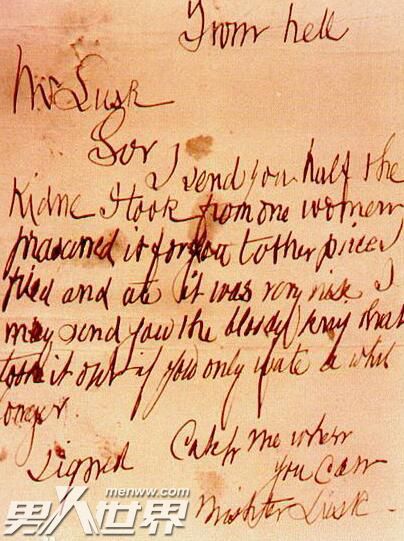 From hell
Mr Lusk
Sor
I send you half the
Kidne I took from one women
prasarved it for you tother piece I
fried and ate it was very nise I
may send you the bloody knif that
took it out if you only wate a whil
longer.
signed Catch me when
you can
Mishter Lusk.
menww.com
男人世界